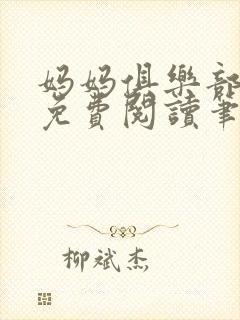 妈妈俱樂部
免費閱讀筆
柳斌杰